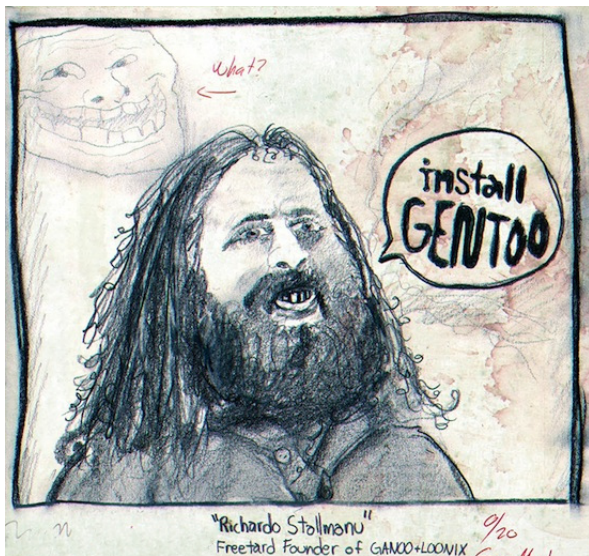 What?
install
GENTOO
"Richardo Stallmanu"
Freetard Founder of GANOO+LOONIX
0/20